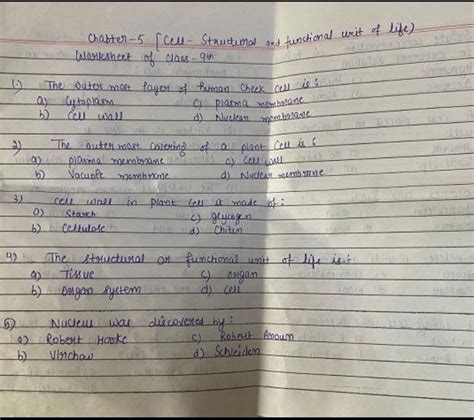 Chapter-5 [Cell - Structural and functional unit of life)
Worksheet of class - 9th
1) The outer most layer of human cheek cell is :
a) Cytoplasm c) plasma membrane
b) Cell wall d) Nuclear membrane
2) The outermost covering of a plant cell is :
a) plasma membrane c) Cell wall
b) Vacuole membrane d) Nuclear membrane
3) cell wall in plant cell is made of :
a) Starch c) glycogen
b) Cellulose d) Chitin
4) The structural or functional unit of life is :
a) Tissue c) organ
b) Organ system d) cell
5) Nucleus was discovered by :
a) Robert Hooke c) Robert Broum
b) Virchow d) Schleiden